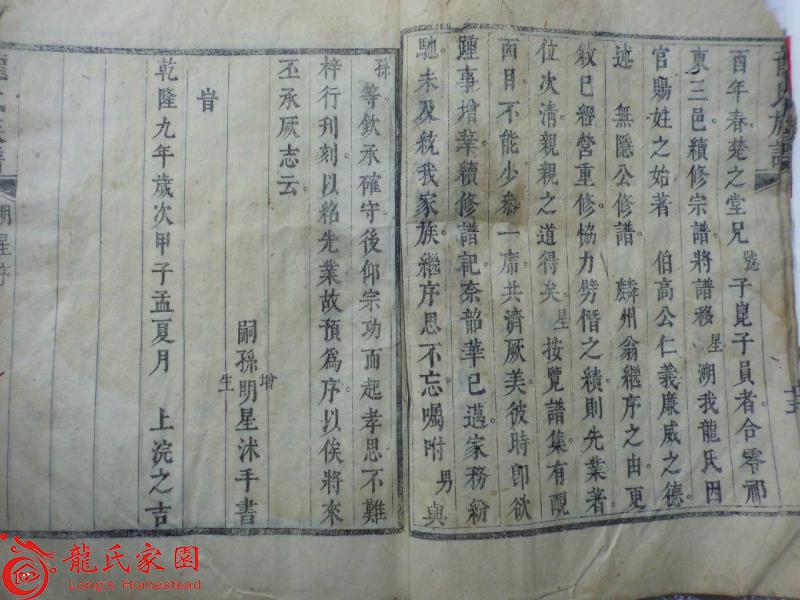 龍氏族譜
酉年春楚之堂兄號子崑子員者合零祁
東三邑續修宗譜將譜移星溯我龍氏因
官賜姓之始著 伯高公仁義廉威之德
述 無隱公修譜 麟州翁繼序之由更
敘已經營重修恊力劈僣之績則先業著
位次清親親之道得矣星按覽譜集有靦
面目不能少叅一席共濟厥美彼時卽欲
踵事增華續修譜記奈韶華已邁家務紛
馳未及統我家族繼序思不忘囑咐男與
孫等欽承確守後仰宗功而起孝思不難
梓行刋刻以紹先業故預爲序以俟將來
丕承厥志云
旹
嗣孫明星沐手書
增生
乾隆九年歲次甲子孟夏月 上浣之吉
明星序
龍氏家園
Long's Homestead